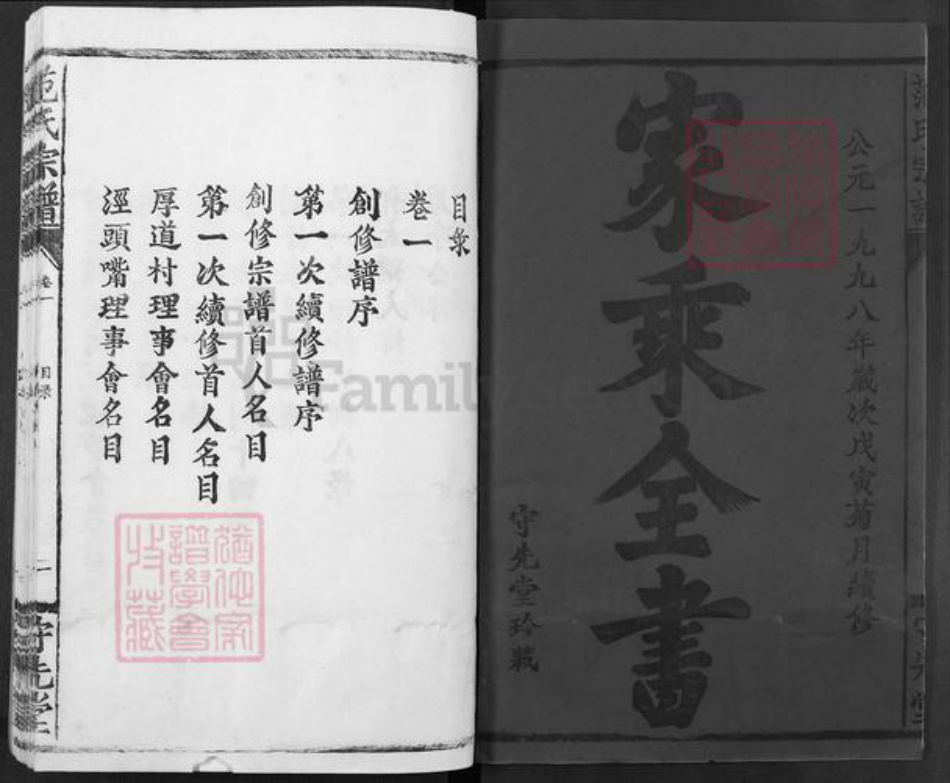 范氏宗譜
公元一九九八年歲次戊寅菊月續修
家乘全書
守先堂珍藏
目录
卷一
創修譜序
第一次續修譜序
創修宗譜首人名目
第一次續修首人名目
厚道村理事會名目
涇頭嘴理事會名目
范氏宗譜
卷一
目録
二
守先堂
Family